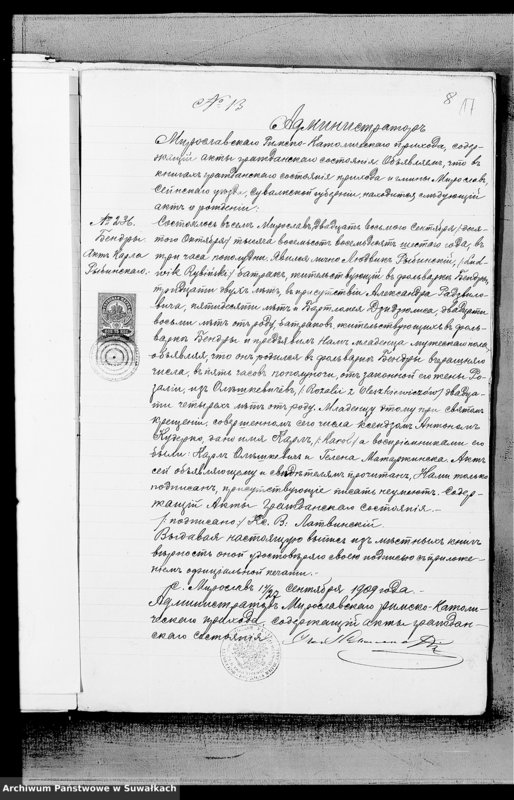 № 13
8
17
Администраторъ
Мирославскаго Римско-Католическаго прихода, содер-
жащiй акты гражданскаго состоянiя Объявляетъ, что въ
книгахъ гражданскаго состоянiя прихода и гмины Мирославъ,
Сейнскаго уѣзда, Сувалкской губернiи, находится слѣдующiй
актъ о рожденiи:
№ 236.
Бендры.
Актъ Карла
Рыбинскаго.
Состоялось въ селѣ Мирославъ, двадцать восьмого Сентября /деся-
того Октября/ тысяча восемьсотъ восемьдесятъ шестого года, въ
три часа пополудни. Явился лично Людвикъ Рыбинскiй, /Lud-
wik Rybiński/ батракъ, жительствующiй въ фольваркѣ Бендры,
тридцати двухъ лѣтъ, въ присутствiи Александра Радзвило-
вича, пятидесяти лѣтъ и Бартломея двадцати
восьми лѣтъ отъ роду, батраковъ, жительствующихъ въ фоль-
варкѣ Бендры и предъявилъ Намъ младенца мужескаго пола,
объявляя, что онъ родился въ фольваркѣ Бендры вчерашняго
числа, въ пять часовъ пополуночи, отъ законной его жены Ро-
залiи, изъ Олешкевичевъ, /Rozalii z Oleszkiewiczów/ двадца-
ти четырехъ лѣтъ отъ роду. Младенцу этому при святомъ
крещенiи, совершенномъ сего числа ксендзомъ Антономъ
дано имя Карлъ, /:Karol:/ а воспрiемниками его
были: Карлъ Олешкевичъ и Гелена Актъ
сей объявляющему и свидѣтелямъ прочитанъ, Нами только
подписанъ, присутствующiе писать неумѣютъ. Содер-
жащiй Акты Гражданскаго Состоянiя.-
/:подписано:/ Кс. В. Латвинскiй.
Выдавая настоящую выпись изъ мѣстныхъ книгъ
вѣрность оной удостовѣряю своею подписью съ приложе-
нiемъ оффицiальной печати.-
с. Мирославъ 14/27 Сентября 1909 года.-
Администраторъ Мирославскаго римско-Католи-
ческаго прихода, содержащiй акты граждан-
скаго состоянiя
Archiwum Państwowe w Suwałkach